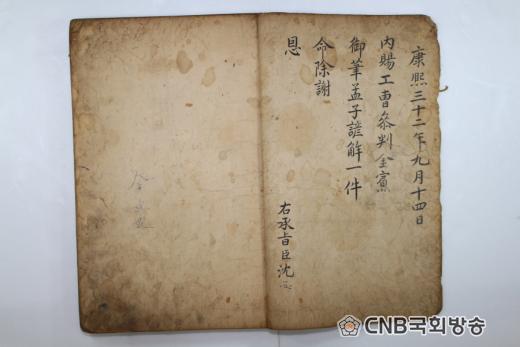 康熙三十二年九月十四日
內賜工曹參判金賓
御筆孟子諺解一件
命除謝
恩
右承旨臣沈
CNB국회방송